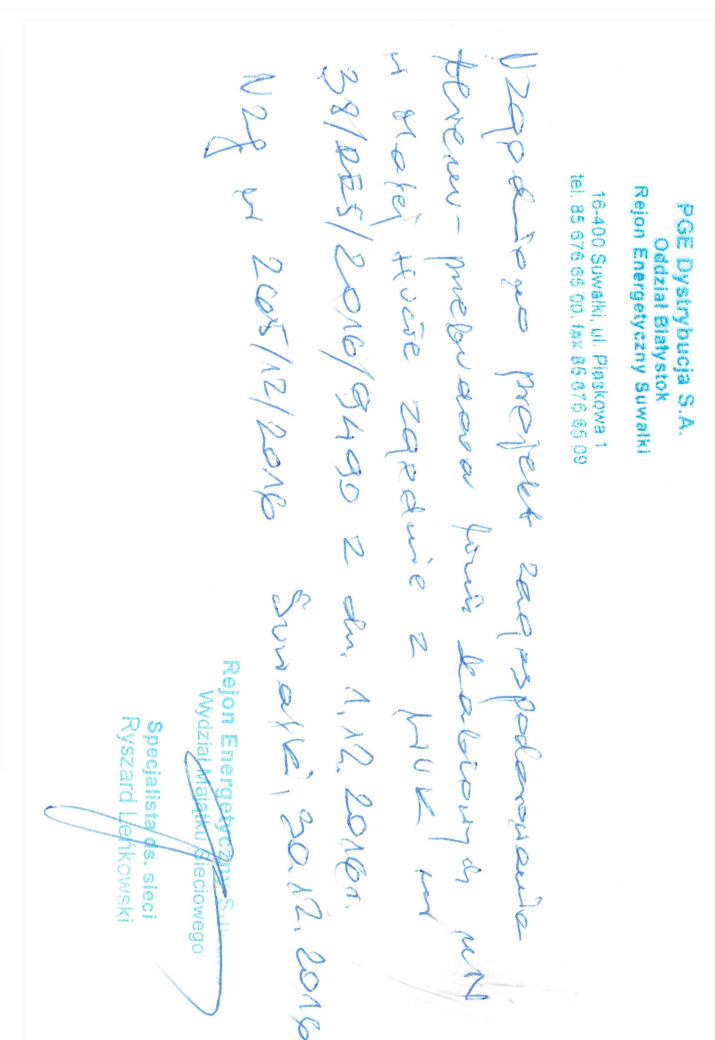 PGE Dystrybucja S.A.
Oddział Białystok
Rejon Energetyczny Suwałki
16-400 Suwałki, ul. Piaskowa 1
tel. 85 676 65 00, fax 85 676 65 09
Uzgodniono projekt zagospodarowania
terenu - przebudowa linii kablowych nN
w Małej Hucie zgodnie z WUK nr
38/RE5/2016/9490 z dn. 1.12.2016r.
Nzg w 2605/12/2016 Suwałki, 30.12.2016
Rejon Energetyczny
Wydział Majątku Sieciowego
Specjalista ds. sieci
Ryszard Leńkowski